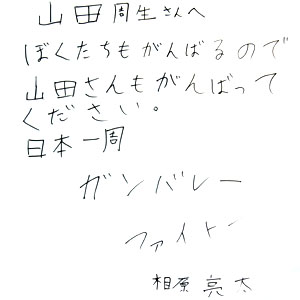 山田周生さんへ
ぼくたちもがんばるので
山田さんもがんばって
ください。
日本一周
ガンバレー
ファイトー
相原亮太